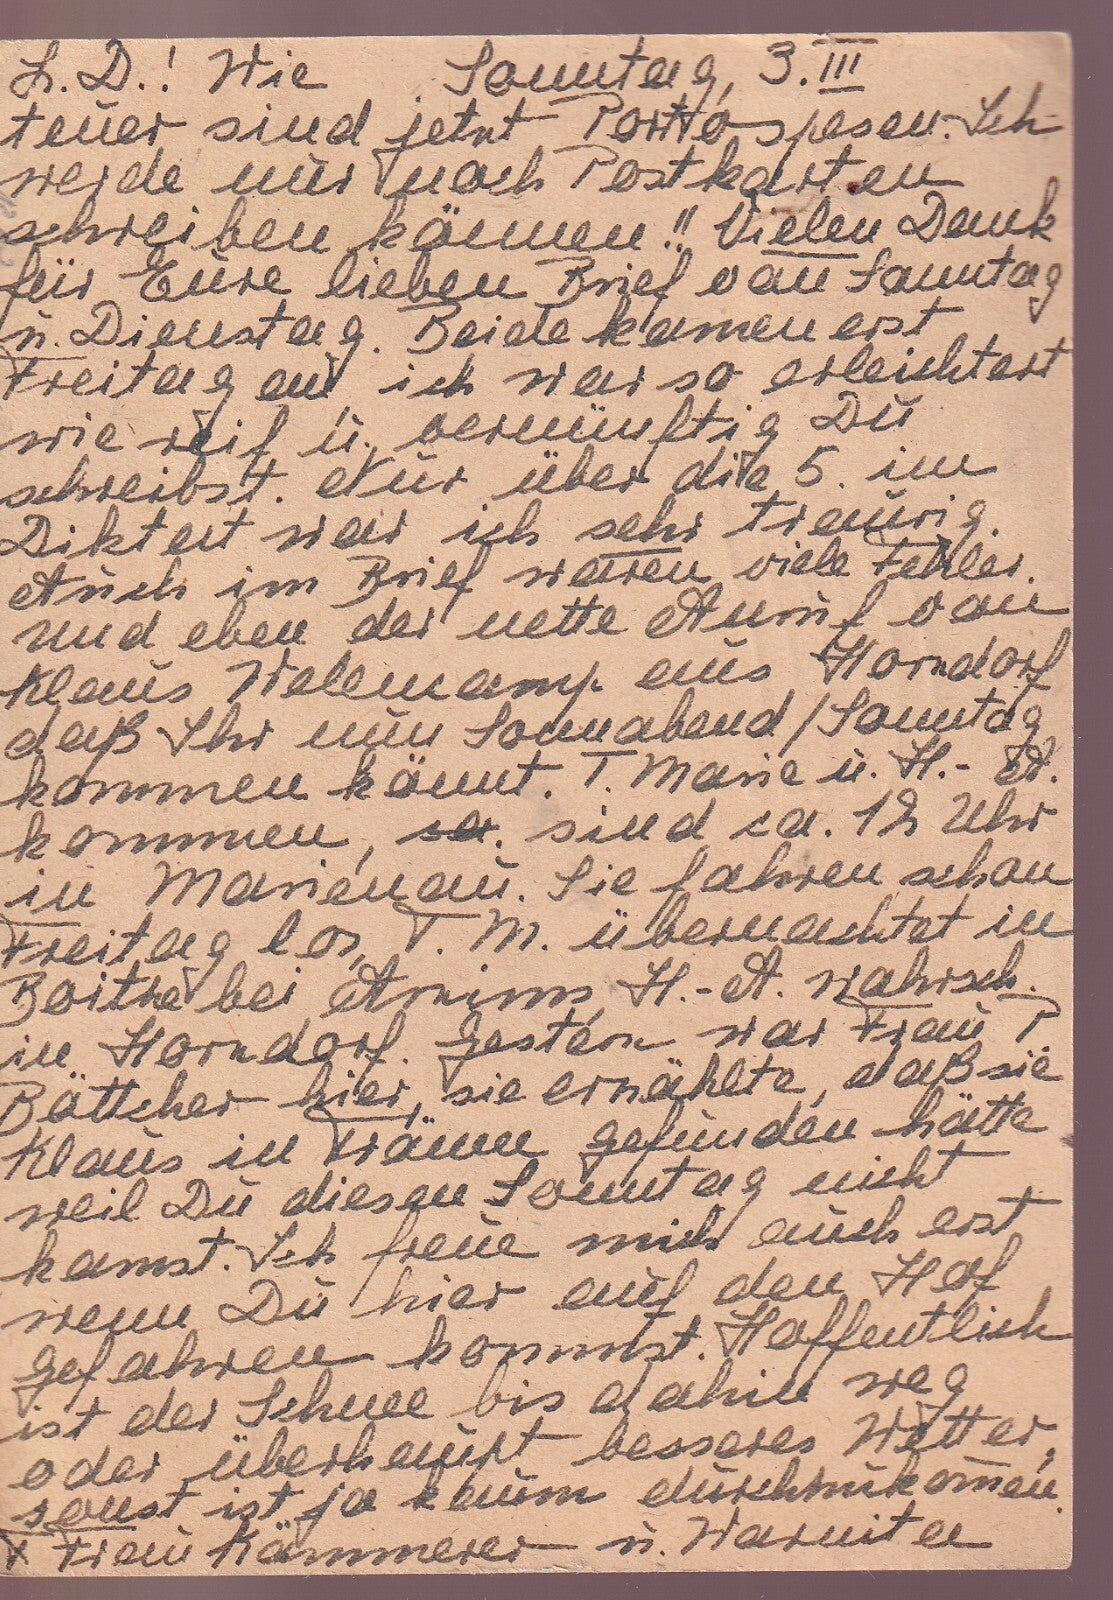 L. D.! Wie Sonntag, 3. III
teuer sind jetzt Portospesen. Ich
werde nur noch Postkarten
schreiben können!! Vielen Dank
für Eure lieben Brief von Sonntag
u. Dienstag. Beide kamen erst
Freitag an ich war so erleichtert
wie reif u. vernünftig Du
schreibst. Nur über die 5. im
Diktat war ich sehr traurig.
Auch im Brief waren viele Fehler.
Und eben der nette Anruf von
Klaus aus Horndorf
daß Ihr nun Sonnabend/Sonntag
kommen könnt. T. Marie u. H.-A.
kommen, sind ca. 12 Uhr
in Marienau. Sie fahren schon
Freitag los, T. M. übernachtet in
Boitze bei Arnims, H.-A. wahrsch.
in Horndorf. Gestern war Frau
Böttcher hier, sie erzählte, daß sie
Klaus in Tränen gefunden hätte
weil Du diesen Sonntag nicht
kamst. Ich freue mich auch erst
wenn Du hier auf den Hof
gefahren kommst. Hoffentlich
ist der Schnee bis dahin weg
oder überhaupt besseres Wetter,
sonst ist ja kaum durchzukommen.
Frau Kämmerer u. Warnitz